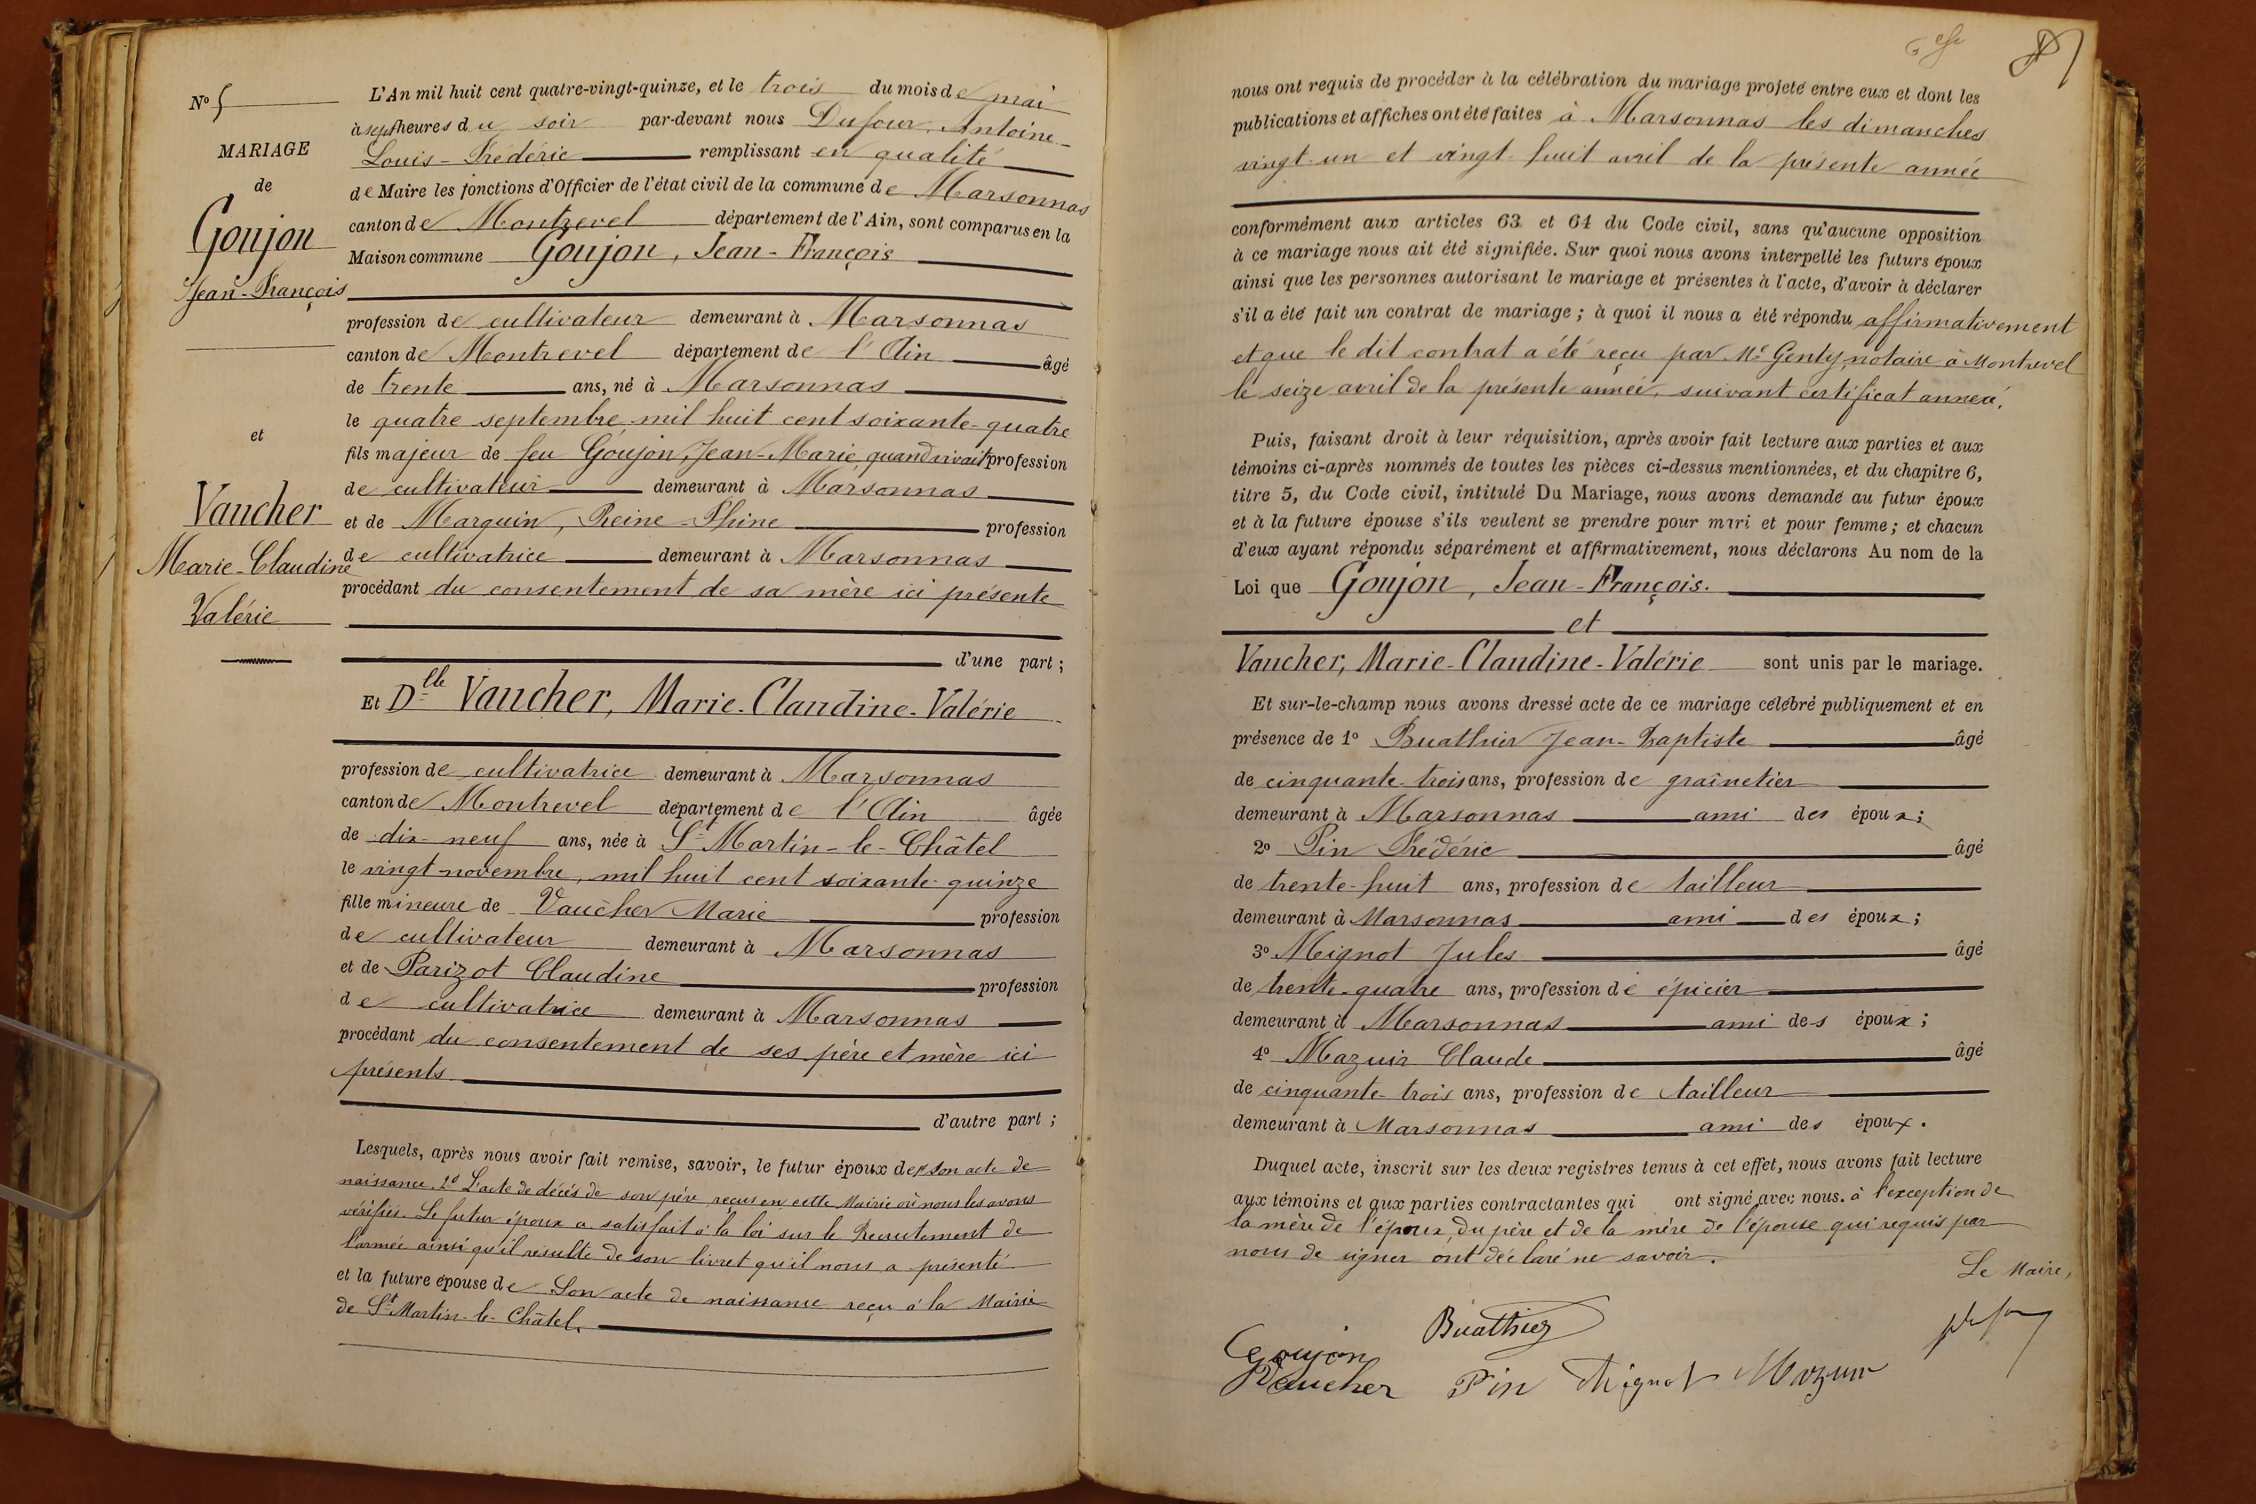 N° 5
MARIAGE
de
Goujon
Jean-François
et
Vaucher
Marie-Claudine
Valérie
L'An mil huit cent quatre-vingt-quinze, et le trois du mois de mai
à sept heures du soir par-devant nous Dufour, Antoine-
Louis-Frédéric remplissant en qualité
de Maire les fonctions d'Officier de l'état civil de la commune de Marsonnas
canton de Montrevel département de l'Ain, sont comparus en la
Maison commune Goujon, Jean-François
profession de cultivateur demeurant à Marsonnas
canton de Montrevel département de l'Ain âgé
de trente ans, né à Marsonnas
le quatre septembre mil huit cent soixante-quatre
fils majeur de feu Goujon, Jean-Marie, quand vivait profession
de cultivateur demeurant à Marsonnas
et de Marquin, Reine-Phine profession
de cultivatrice demeurant à Marsonnas
procédant du consentement de sa mère ici présente
d'une part ;
Et Dlle Vaucher, Marie-Claudine-Valérie
profession de cultivatrice demeurant à Marsonnas
canton de Montrevel département de l'Ain âgée
de dix-neuf ans, née à St Martin-le-Châtel
le vingt novembre, mil huit cent soixante-quinze
fille mineure de Vaucher Marie profession
de cultivateur demeurant à Marsonnas
et de Parizot Claudine profession
de cultivatrice demeurant à Marsonnas
procédant du consentement de ses père et mère ici
présents
d'autre part ;
Lesquels, après nous avoir fait remise, savoir, le futur époux de son acte de
naissance, 2° L'acte de décès de son père, reçus en cette Mairie où nous les avons
vérifiés. Le futur époux a satisfait à la loi sur le Recrutement de
l'armée ainsi qu'il résulte de son livret qu'il nous a présenté
et la future épouse de Son acte de naissance reçu à la Mairie
de St Martin-le-Châtel.
87
nous ont requis de procéder à la célébration du mariage projeté entre eux et dont les
publications et affiches ont été faites à Marsonnas les dimanches
vingt-un et vingt-huit avril de la présente année
conformément aux articles 63 et 64 du Code civil, sans qu'aucune opposition
à ce mariage nous ait été signifiée. Sur quoi nous avons interpellé les futurs époux
ainsi que les personnes autorisant le mariage et présentes à l'acte, d'avoir à déclarer
s'il a été fait un contrat de mariage ; à quoi il nous a été répondu affirmativement
et que le dit contrat a été reçu par Me Genty, notaire à Montrevel
le seize avril de la présente année, suivant certificat annexé.
Puis, faisant droit à leur réquisition, après avoir fait lecture aux parties et aux
témoins ci-après nommés de toutes les pièces ci-dessus mentionnées, et du chapitre 6,
titre 5, du Code civil, intitulé Du Mariage, nous avons demandé au futur époux
et à la future épouse s'ils veulent se prendre pour mari et pour femme ; et chacun
d'eux ayant répondu séparément et affirmativement, nous déclarons Au nom de la
Loi que Goujon, Jean-François.
et
Vaucher, Marie-Claudine-Valérie sont unis par le mariage.
Et sur-le-champ nous avons dressé acte de ce mariage célébré publiquement et en
présence de 1° Buathier Jean-Baptiste âgé
de cinquante-trois ans, profession de grainetier
demeurant à Marsonnas ami des époux ;
2° Pin Frédéric âgé
de trente-huit ans, profession de tailleur
demeurant à Marsonnas ami des époux ;
3° Mignot Jules âgé
de trente-quatre ans, profession de épicier
demeurant à Marsonnas ami des époux ;
4° Mazuir Claude âgé
de cinquante-trois ans, profession de tailleur
demeurant à Marsonnas ami des époux.
Duquel acte, inscrit sur les deux registres tenus à cet effet, nous avons fait lecture
aux témoins et aux parties contractantes qui ont signé avec nous. à l'exception de
la mère de l'époux, du père et de la mère de l'épouse qui requis par
nous de signer ont déclaré ne savoir.
Le Maire,
Buathier
Goujon
Vaucher Pin Mignot Mazuir